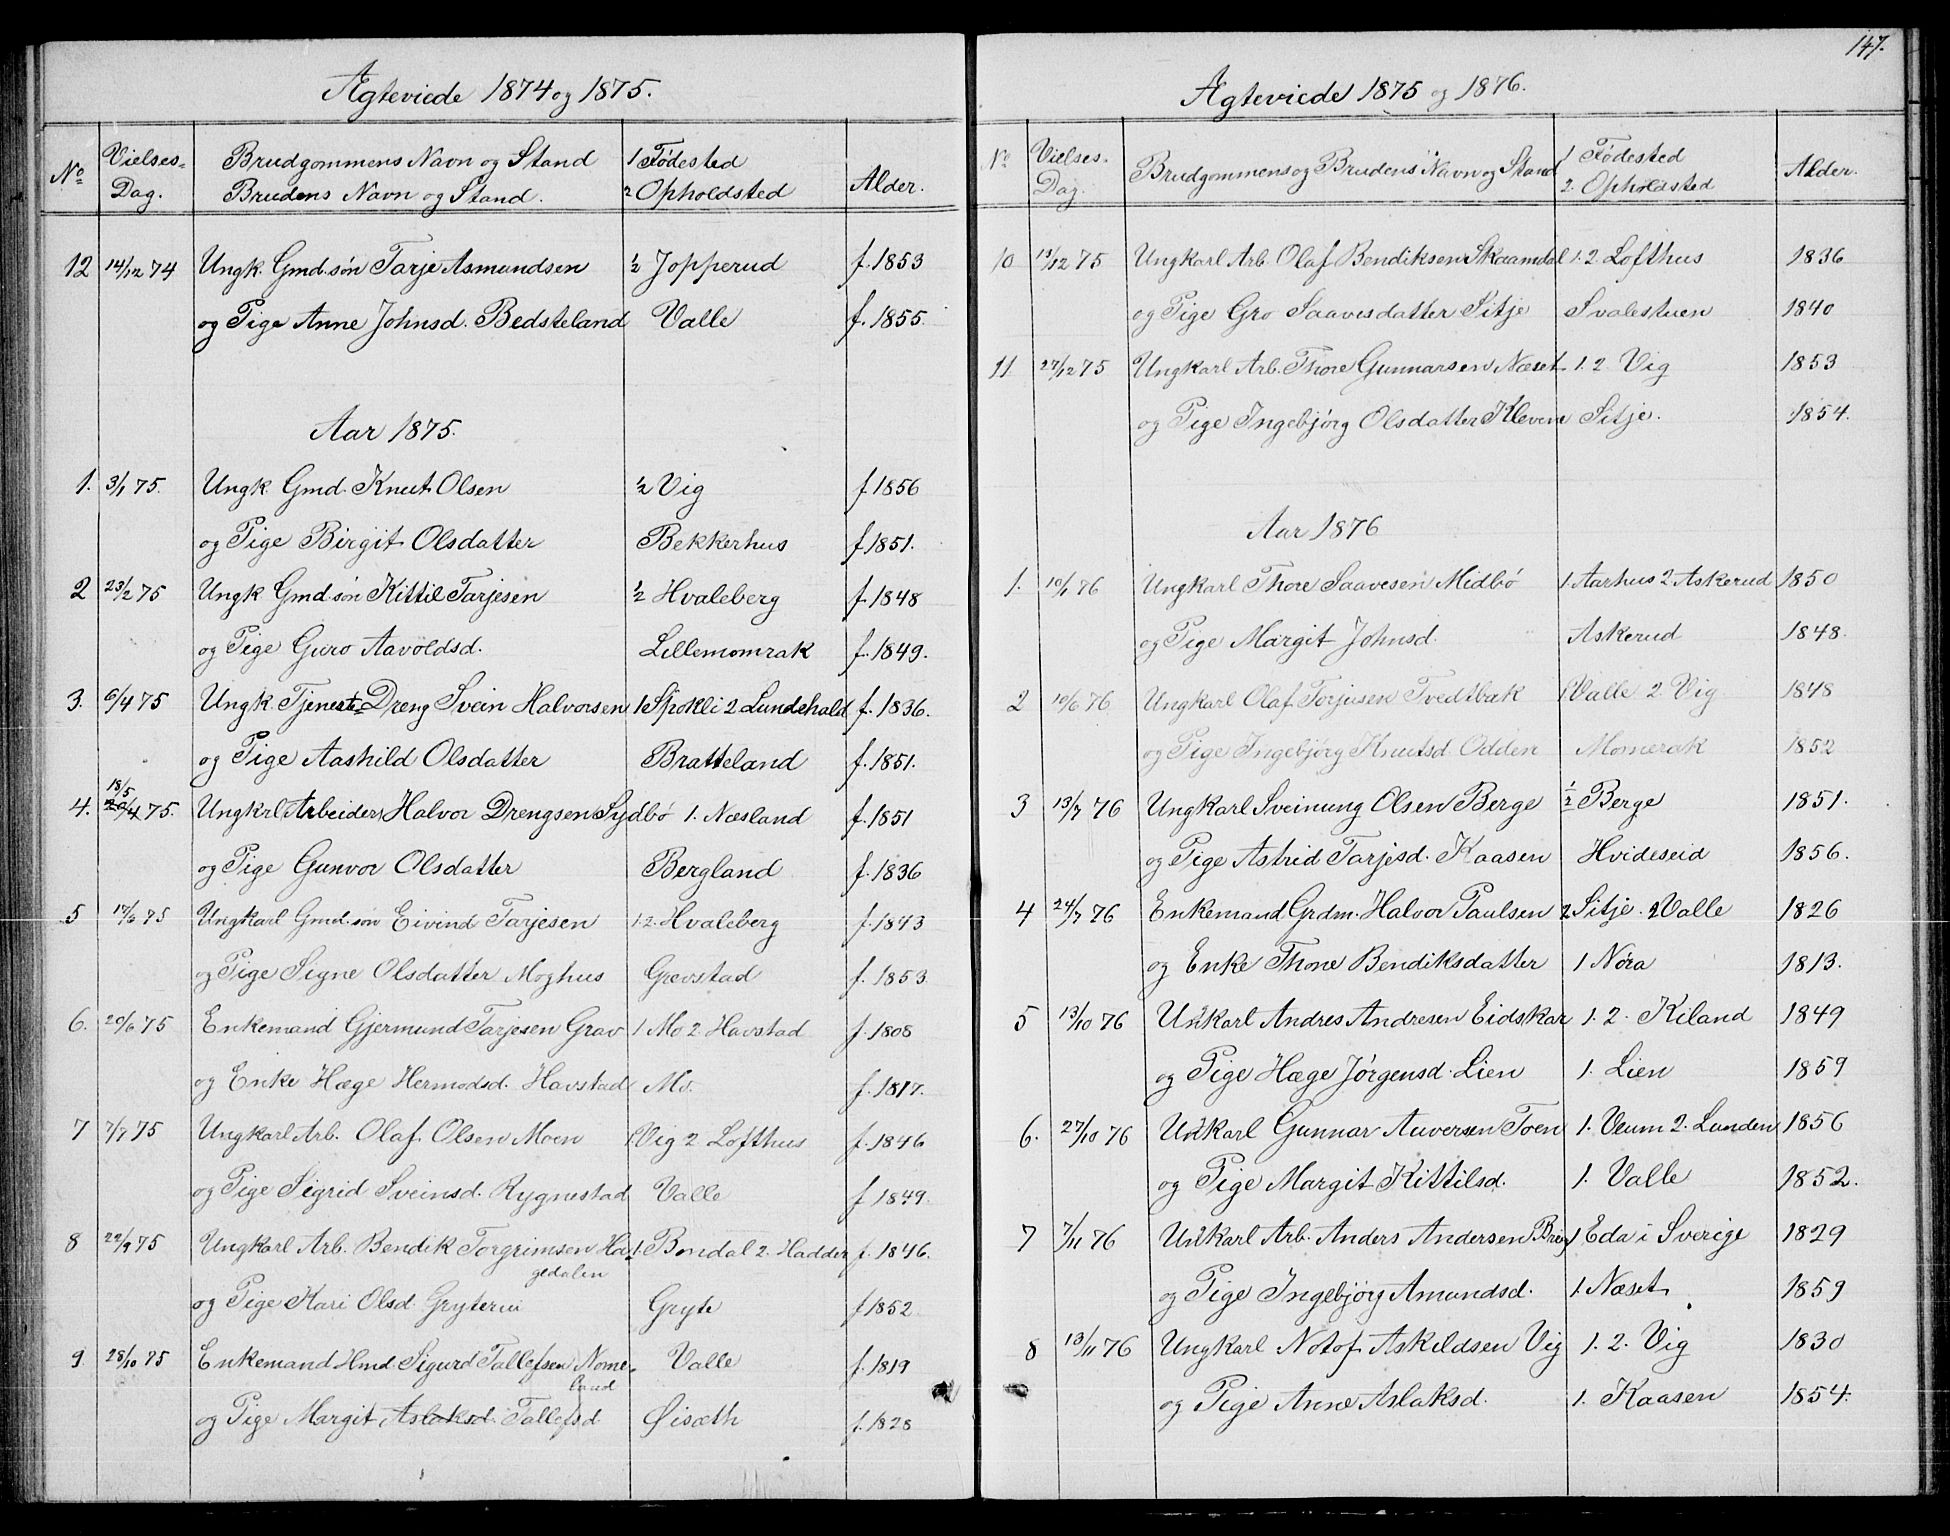 Ægteviede 1874 og 1875.
No | Vielses-Dag. | Brudgommens Navn og Stand Brudens Navn og Stand. | 1 Fødested 2 Opholdsted | Alder.
12 14/12 74 Ungk. Gmd.søn Tarje Asmundsen 1/2 Jopperud f. 1853
og Pige Anne Johnsd. Bedsteland Valle f. 1855.
Aar 1875.
1. 3/1 75. Ungk. Gmd. Knut Olsen 1/2 Vig f. 1856
og Pige Birgit Olsdatter Bekkerhus f. 1851.
2 23/2 75 Ungk Gmd.søn Kittil Tarjesen 1/2 Hvaleberg f. 1848
og Pige Guro Aavoldsd. Lillemomrak f. 1849.
3. 6/4 75 Ungk. Tjeneste-Dreng Svein Halvorsen 1 Spokli 2 Lundehald f. 1836.
og Pige Aashild Olsdatter Bratteland f. 1851.
18/5
4. 20/4 75. Ungkrl Arbeider Halvor Drengsen Sydbø 1. Næsland f. 1851
og Pige Gunvor Olsdatter Bergland f. 1836
5 17/6 75 Ungkarl Gmd.søn Eivind Tarjesen 1.2. Hvaleberg f. 1843
og Pige Signe Olsdatter Moghus Grevstad f. 1853.
6. 20/6 75 Enkemand Gjermund Tarjesen Grav 1 Mo 2 Havstad f. 1808
og Enke Hæge Hermodsd. Havstad Mo. f. 1817.
7 7/7 75 Ungkarl Arb. Olaf Olsen Moen 1 Vig 2 Lofthus f. 1846
og Pige Sigrid Sveinsd. Rygnestad Valle f 1849.
8 22/9 75 Ungkarl Arb. Bendik Torgrimsen Hau- 1. Bondal 2. Hadder f. 1846.
gedalen
og Pige Kari Olsd. Gryterui Gryte f 1852
9 28/10 75 Enkemand Hmd Sigurd Tallefsen Nome- Valle f. 1819
land
og Pige Margit Aslaksd. Tallefsd Øisæth f. 1828
147.
Ægteviede 1875 og 1876.
No | Vielses-Dag. | Brudgommens og Brudens Navn og Stand | 1 Fødested 2. Opholdsted | Alder.
10 13/12 75 Ungkarl Arb. Olaf Bendiksen Skaamdal 1. 2. Lofthus 1836
og Pige Gro Saavesdatter Sitje Svalestuen 1840
11. 27/12 75 Ungkarl Arb. Thore Gunnarsen Næset 1. 2 Vig 1853
og Pige Ingebjörg Olsdatter Kleven Sitje. 1854.
Aar 1876
1. 10/1 76 Ungkarl Thore Saavesen Midbø 1. Aarhus 2 Askerud 1850
og Pige Margit Johnsd. Askerud 1848.
2 10/6 76 Ungkarl Olaf Torjusen Tvedtbak 1. Valle 2 Vig 1848
og Pige Ingebjörg Knutsd Odden Momerak 1852
3 13/7 76 Ungkarl Sveinung Olsen Berge 1/2 Berge 1851.
og Pige Astrid Tarjesd. Kaasen Hvideseid 1856.
4 24/7 76 Enkemand Grdm. Halvor Paulsen 2 Sitje. 2 Valle 1826
og Enke Thone Bendiksdatter 1 Nøra 1813.
5 13/10 76 Unkarl Andres Andresen Eidskar 1. 2. Kiland 1849
og Pige Hæge Jørgensd. Lien 1. Lien 1859
6. 27/10 76 Unkarl Gunnar Auversen Toen 1. Veum 2. Lunden 1856
og Pige Margit Kittilsd. 1. Valle 1852.
7 7/11 76 Unkarl Arb. Anders Andersen 1 Eda i Sverige 1829
og Pige Ingebjörg Amundsd. 1. Næset 1859
8 13/11 76 Ungkarl Notof Askildsen Vig 1. 2. Vig 1830
og Pige Anne Aslaksd. 1. Kaasen 1854.